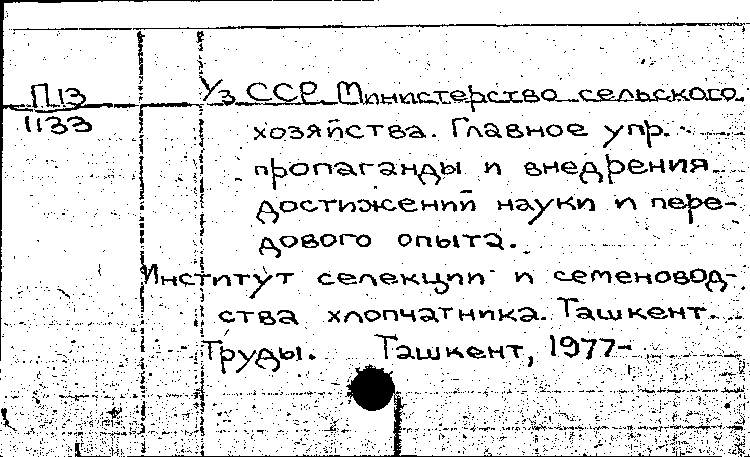 П13
1133
Уз ССР Министерство сельского
хозяйства. Главное упр.
пропаганды и внедрения
достижений науки и пере-
дового опыта.
Институт селекции и семеновод-
ства хлопчатника. Ташкент.
Труды. Ташкент, 1977-